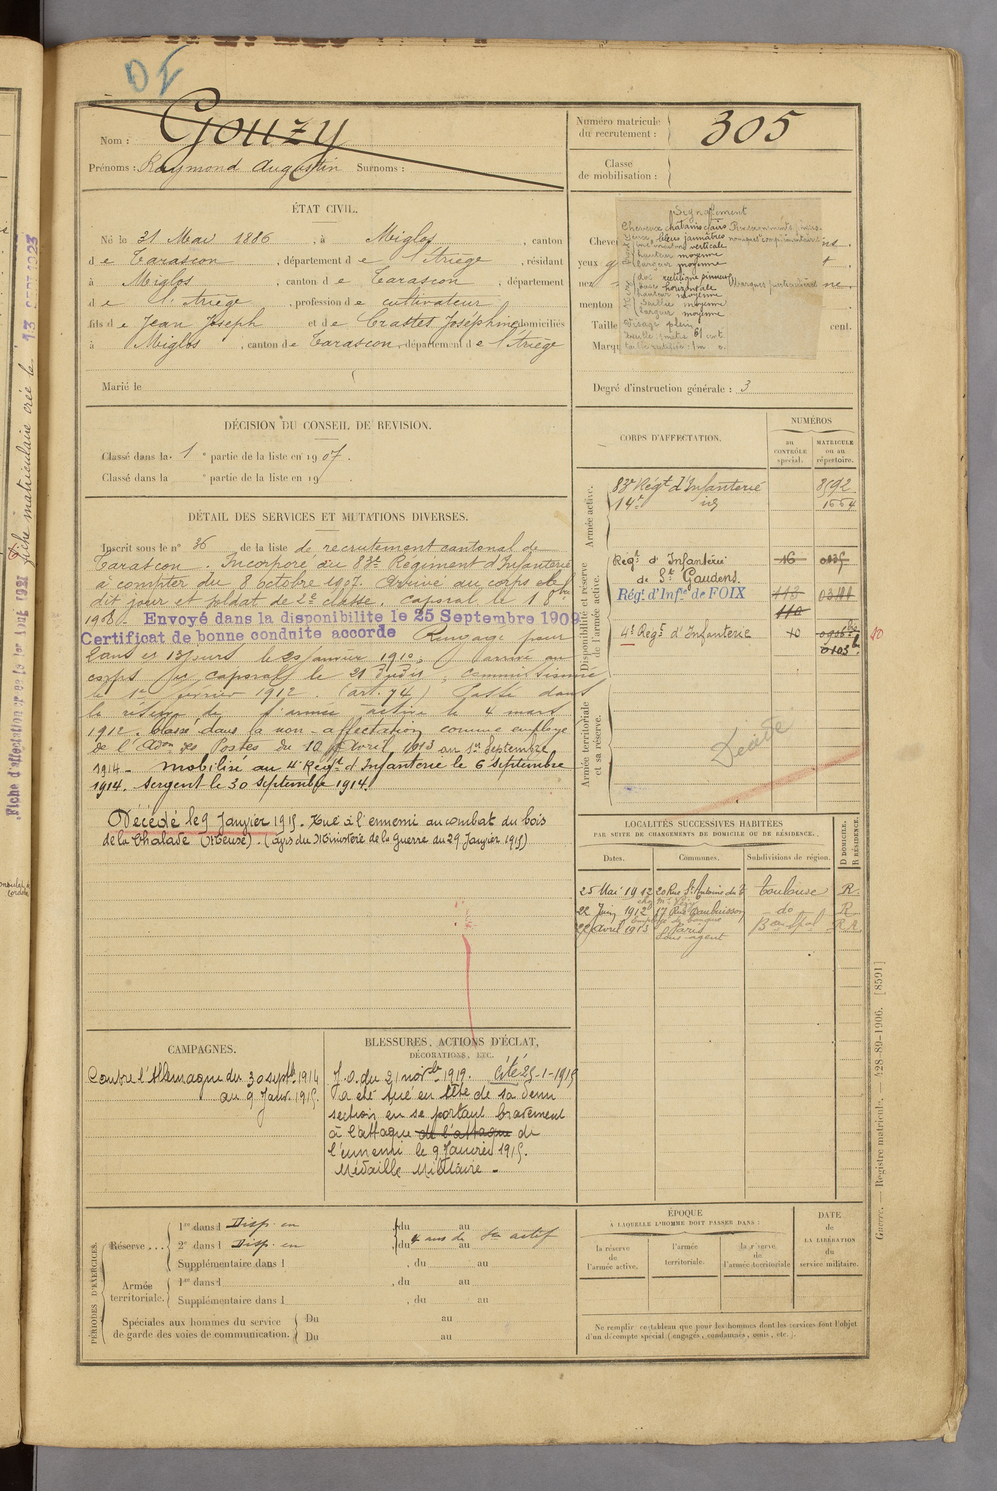 Nom : Gouzy
Prénoms : Raymond Augustin Surnoms :
Numéro matricule du recrutement : 305
Classe de mobilisation :
ÉTAT CIVIL.
Né le 31 Mai 1886, à Miglos, canton
de Tarascon, département de l'Ariège, résidant
à Miglos, canton de Tarascon, département
de l'Ariège, profession de cultivateur
fils de Jean Joseph et de Crastes Joséphine domiciliés
à Miglos, canton de Tarascon, département de l'Ariège
Marié le
Signalement
Cheveux chatains clairs
bleus jaunâtres
verticale
hauteur moyenne
largeur moyenne
dos rectiligne
base horizontale
hauteur moyenne
Saillie moyenne
largeur moyenne
Visage plein
Taille 1 mètre 61 cent.
Taille rectifiée : 1 m c.
Marques particulières
yeux
nez
menton
Taille
cent.
Degré d'instruction générale : 3
DÉCISION DU CONSEIL DE REVISION.
Classé dans la 1e partie de la liste en 1907.
Classé dans la e partie de la liste en 19
DÉTAIL DES SERVICES ET MUTATIONS DIVERSES.
Inscrit sous le n° 36 de la liste de recrutement cantonal de
Tarascon. Incorporé au 83e Régiment d'Infanterie
à compter du 8 octobre 1907. Arrivé au corps le
dit jour et soldat de 2e classe. Caporal le 1 8bre
1908. Envoyé dans la disponibilité le 25 Septembre 1909
Certificat de bonne conduite accordé Rengagé pour
2 ans et 13 jours le 20 janvier 1910. Arrivé au
corps caporal le 21 dudit ; commissionné
le 1er février 1912. (art. 74) Passé dans
la réserve de l'armée active le 4 mars
1912. Classé dans la non-affectation comme employé
de l'Adon des Postes du 10 Avril 1913 au 1er Septembre
1914 - Mobilisé au 4e Régt d'Infanterie le 6 septembre
1914. Sergent le 30 septembre 1914.
Décédé le 9 Janvier 1915. Tué à l'ennemi au combat du bois
de la Chalade (Meuse). (avis du Ministère de la Guerre du 29 Janvier 1915)
CORPS D'AFFECTATION.
NUMÉROS
au CONTRÔLE spécial.
MATRICULE ou au répertoire.
Armée active.
83e Régt d'Infanterie 8592
14e id 1664
Disponibilité et réserve de l'armée active.
Régt d'Infanterie de St Gaudens. 16
Régt. d'Infie de FOIX 118
110
4e Régt d'Infanterie 10
0103
Armée territoriale et sa réserve.
Décédé
LOCALITÉS SUCCESSIVES HABITÉES
PAR SUITE DE CHANGEMENTS DE DOMICILE OU DE RÉSIDENCE.
Dates. Communes. Subdivisions de région. D DOMICILE. R RÉSIDENCE.
25 Mai 1912 20 Rue St Antoine du T Toulouse R
22 Juin 1912 17 Rue Caubuisson do R
22 Avril 1913 Paris
Sous agent
CAMPAGNES.
Contre l'Allemagne du 30 septbre 1914
au 9 Janv. 1915.
BLESSURES, ACTIONS D'ÉCLAT,
DÉCORATIONS, ETC.
J.O. du 21 novbre 1919. Cité 25-1-1915
"a été tué en tête de sa demi
section en se portant bravement
à l'attaque de l'attaque de
l'ennemi le 9 Janvier 1915.
Médaille Militaire -
PÉRIODES D'EXERCICES.
Réserve... 1re dans l Disp. en du au
2e dans l Disp. en du 4 ans de au Sce actif
Supplémentaire dans l , du au
Armée territoriale. 1re dans l , du au
Supplémentaire dans l , du au
Spéciales aux hommes du service de garde des voies de communication. Du au
Du au
ÉPOQUE
À LAQUELLE L'HOMME DOIT PASSER DANS :
la réserve de l'armée active.
l'armée territoriale.
la réserve de l'armée territoriale
DATE de LA LIBÉRATION du service militaire.
Ne remplir ce tableau que pour les hommes dont les services font l'objet
d'un décompte spécial (engagés, condamnés, omis, etc.).
Guerre. — Registre matricule. — 428-89-1906. [8591]